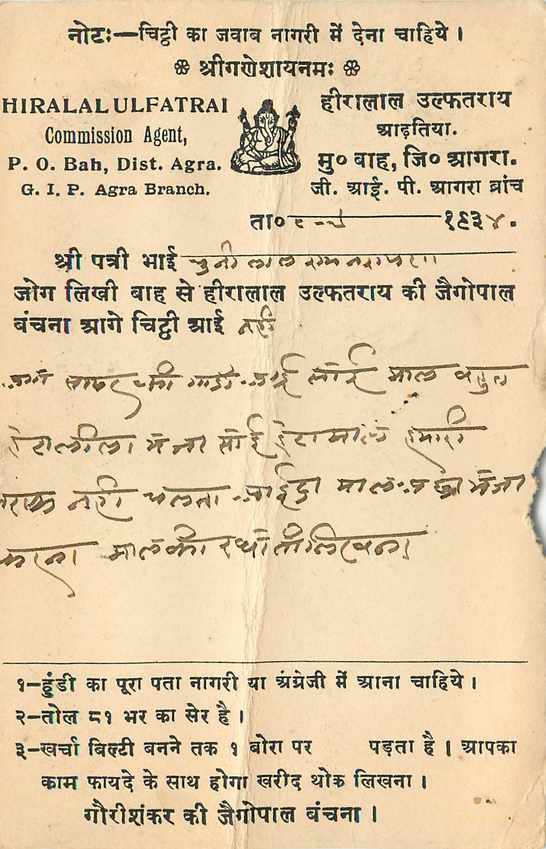 नोटः—चिट्ठी का जवाब नागरी में देना चाहिये ।
❀ श्रीगणेशायनमः ❀
HIRALAL ULFATRAI
Commission Agent,
P. O. Bah, Dist. Agra.
G. I. P. Agra Branch.
हीरालाल उल्फतराय
आढ़तिया.
मु० बाह, जि० आगरा.
जी. आई. पी. आगरा ब्रांच
ता० १९३४.
श्री पत्री भाई चुनी लाल
जोग लिखी बाह से हीरालाल उल्फतराय की जैगोपाल
बंचना आगे चिट्ठी आई नही
की गाडी आई सोई माल बहुत
भेजा सोई माल हमारी
तरफ नही चलता माल भेजा
करना माल की लिखना
१–हुंडी का पूरा पता नागरी या अंग्रेजी में आना चाहिये ।
२–तोल ८१ भर का सेर है ।
३–खर्चा बिल्टी बनने तक १ बोरा पर पड़ता है । आपका
काम फायदे के साथ होगा खरीद थोक लिखना ।
गौरीशंकर की जैगोपाल बंचना ।